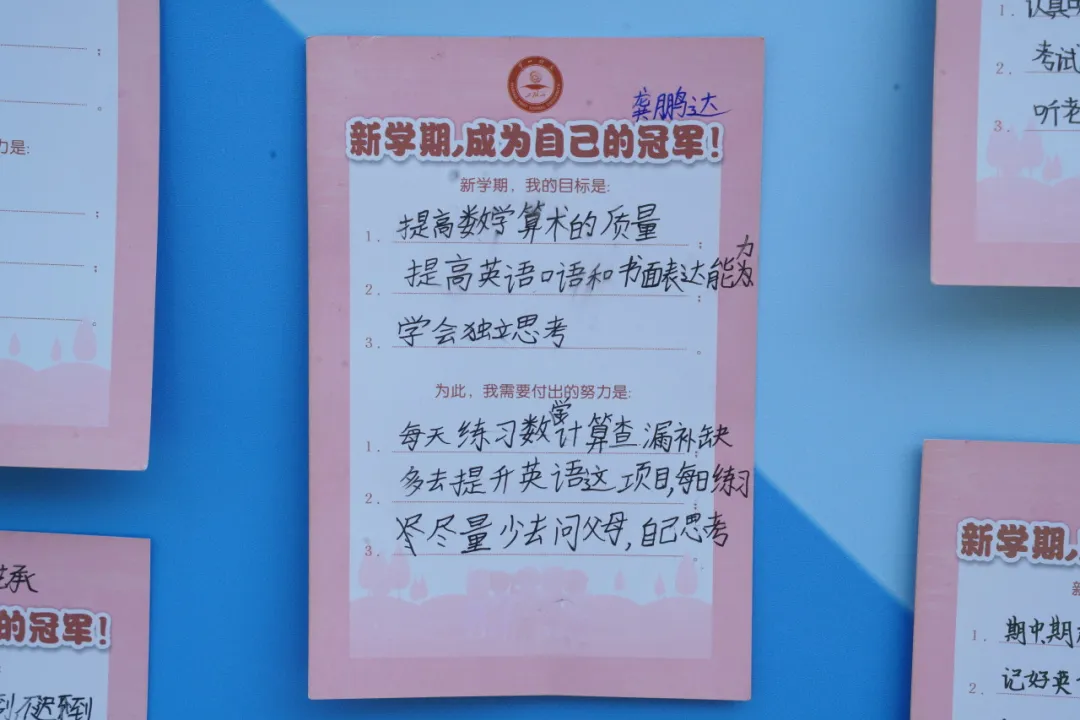 龚鹏达
新学期,成为自己的冠军!
新学期，我的目标是:
1. 提高数学算术的质量;
2. 提高英语口语和书面表达能力;
3. 学会独立思考。
为此，我需要付出的努力是:
1. 每天练习数学计算查漏补缺;
2. 多去提升英语这项目,每日练习;
3. 尽量少去问父母,自己思考。
力是:
承
的冠军!
到不迟到
1. 认真
2. 考试
3. 听老
新学期,
1. 期中期
2. 记好英